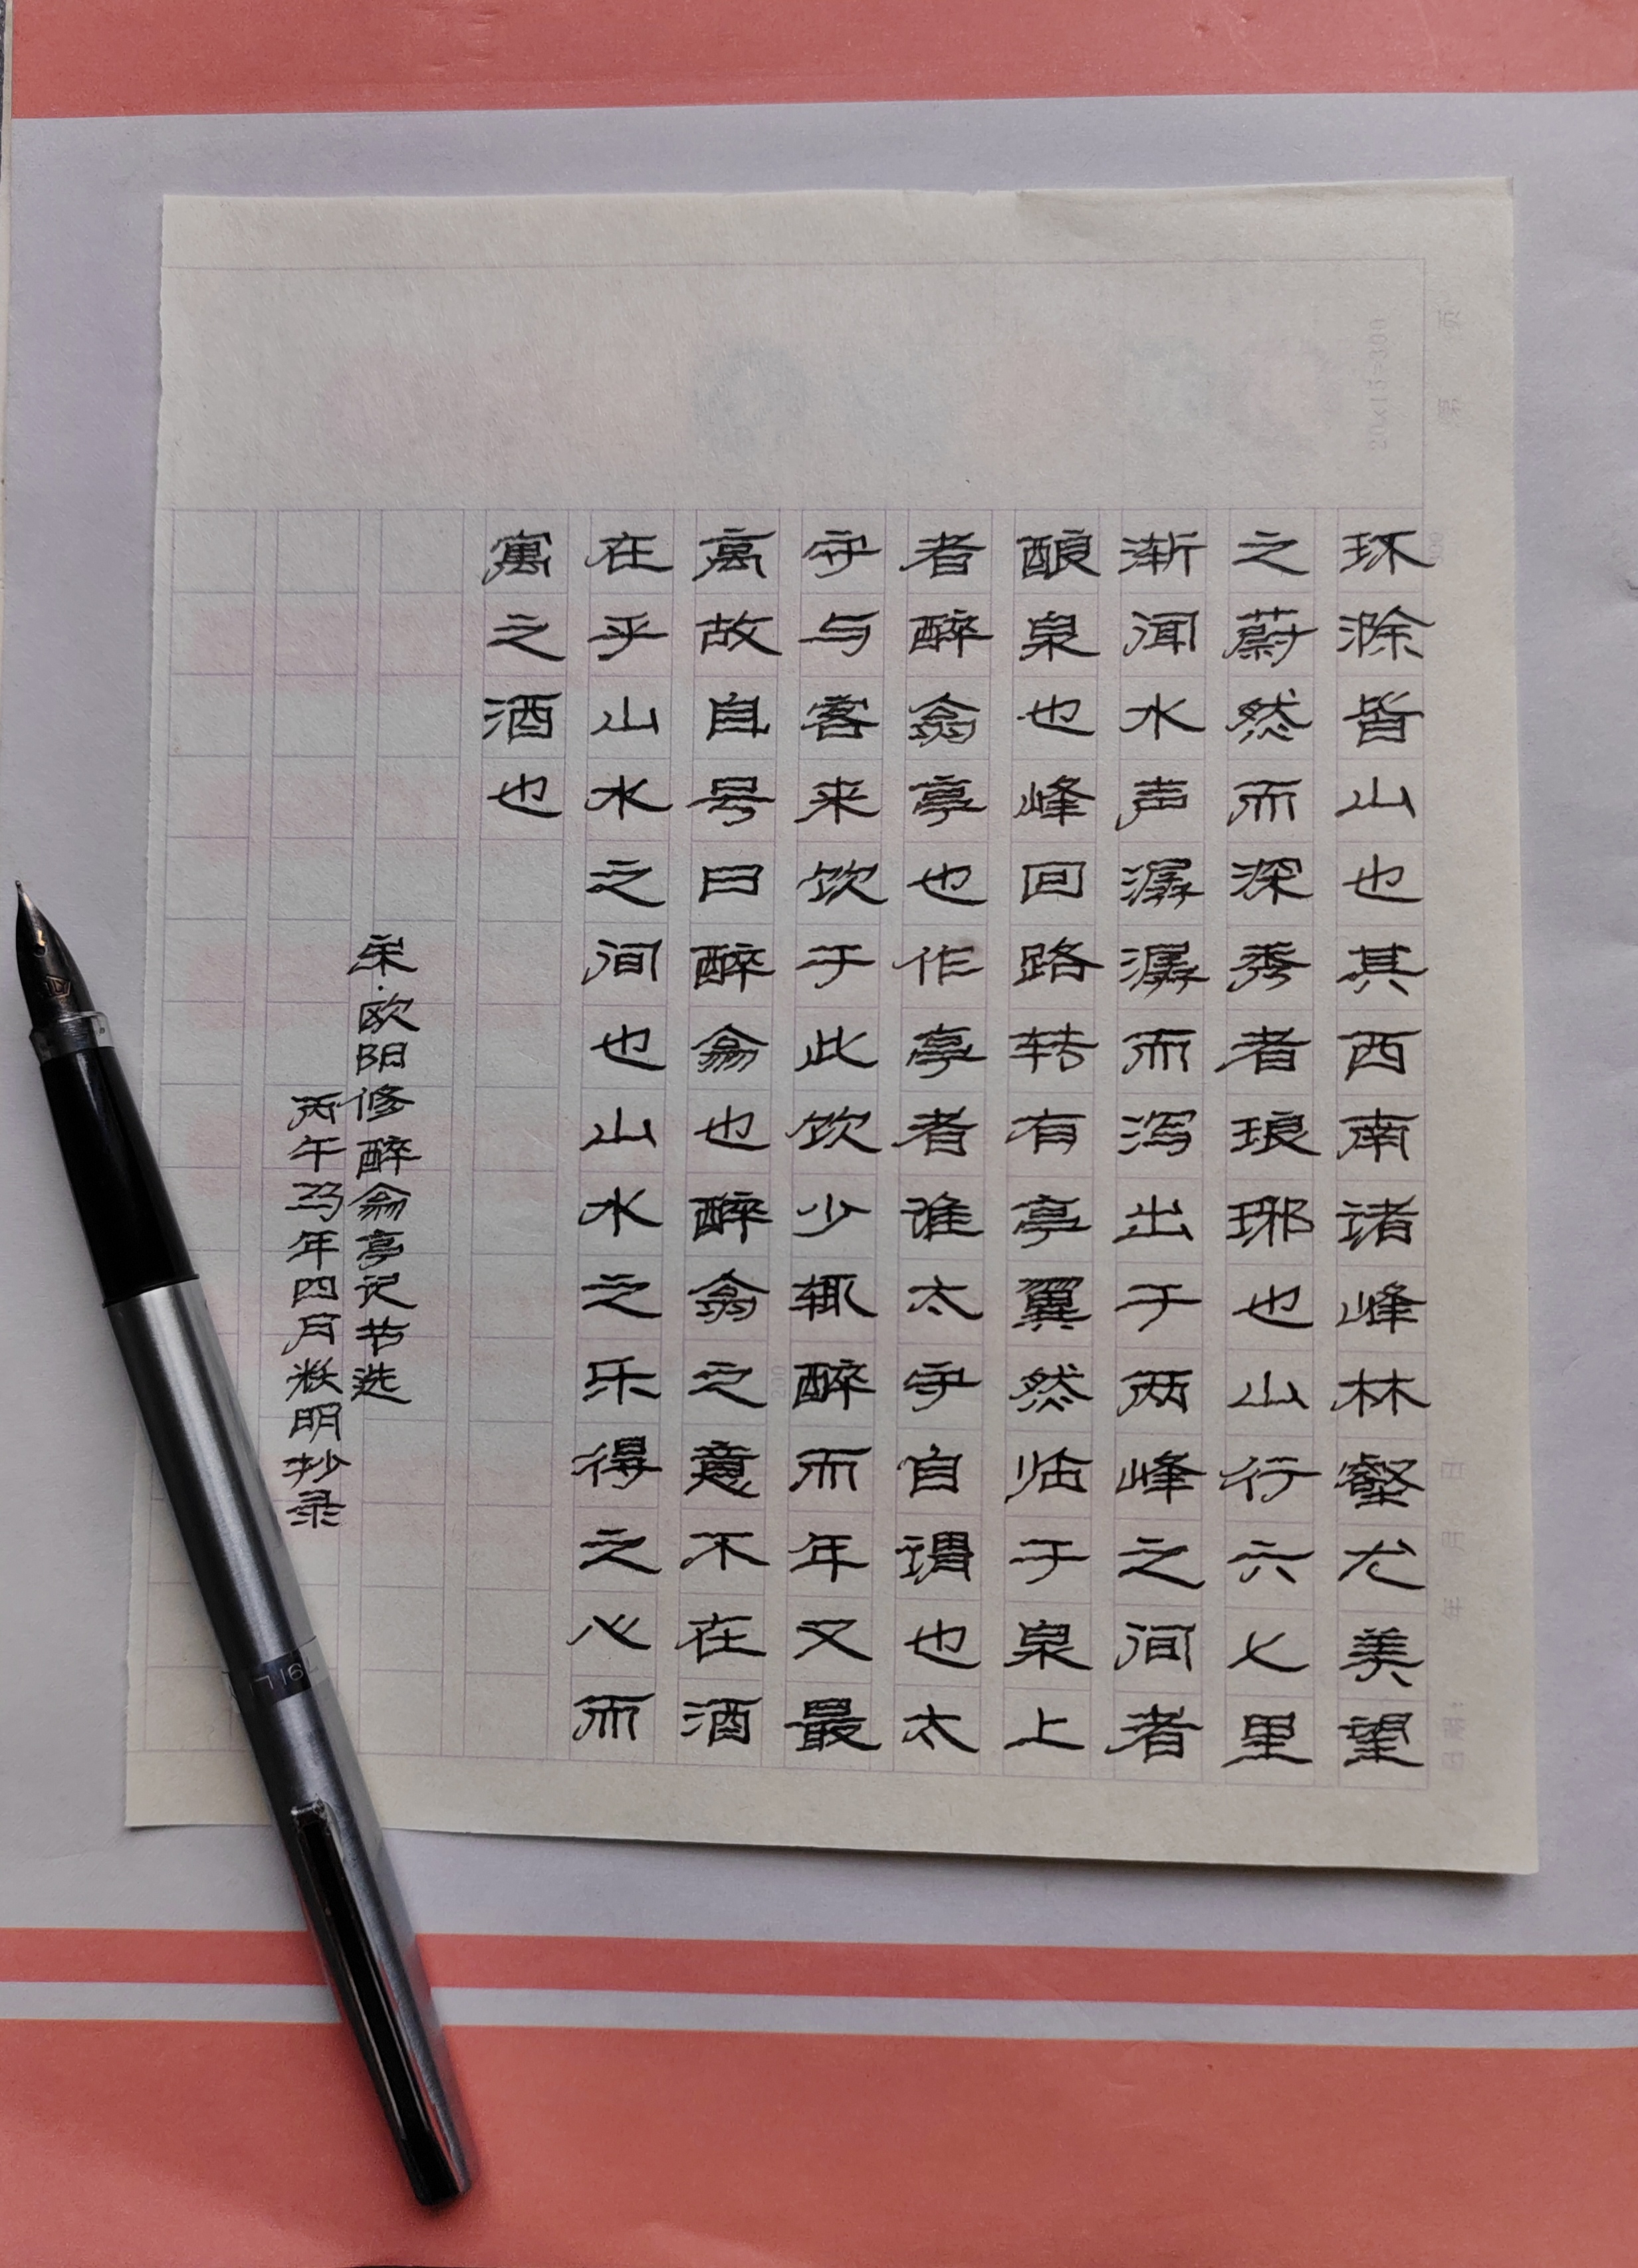 环滁皆山也其西南诸峰林壑尤美望
之蔚然而深秀者琅琊也山行六七里
渐闻水声潺潺而泻出于两峰之间者
酿泉也峰回路转有亭翼然临于泉上
者醉翁亭也作亭者谁太守自谓也太
守与客来饮于此饮少辄醉而年又最
高故自号曰醉翁也醉翁之意不在酒
在乎山水之间也山水之乐得之心而
寓之酒也
宋·欧阳修醉翁亭记节选
丙午马年四月明抄录
20x15=300
第 页
日期: 年 月 日